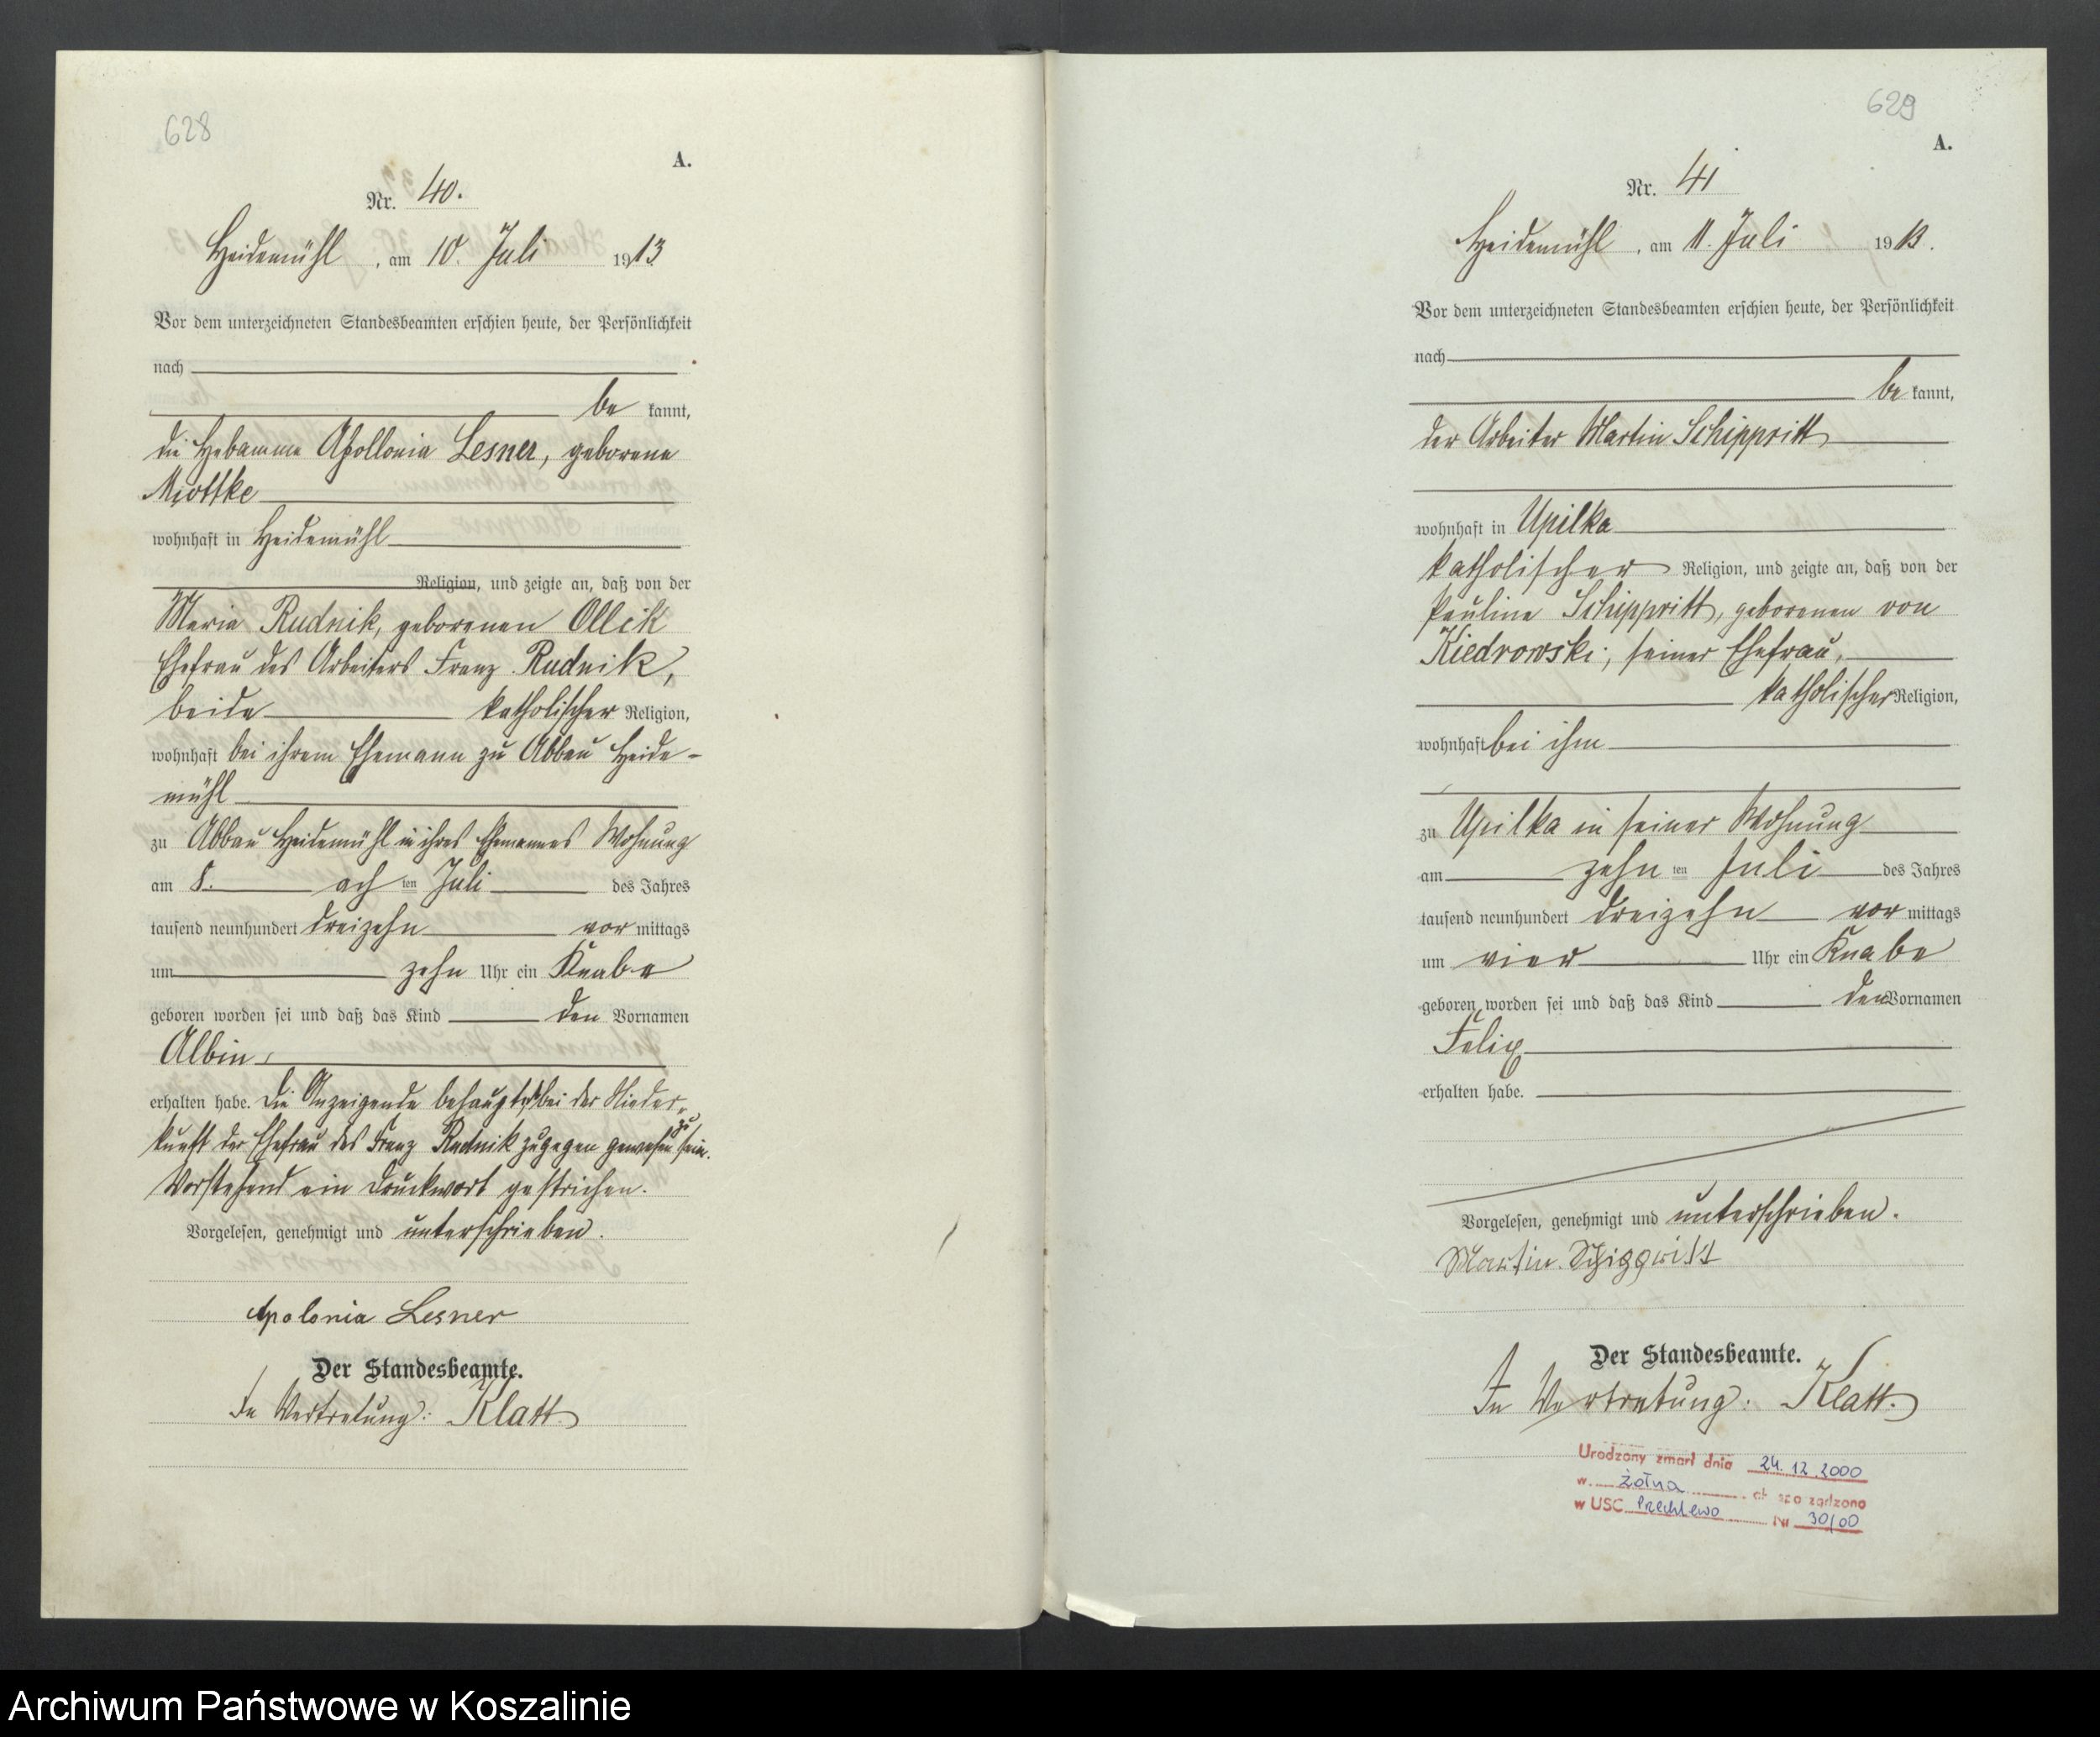 628
A.
Nr. 40.
Heidemühl, am 10. Juli 1913
Vor dem unterzeichneten Standesbeamten erschien heute, der Persönlichkeit
nach
be kannt,
die Hebamme Apollonia Lesner, geborene
Miottke
wohnhaft in Heidemühl
Religion, und zeigte an, daß von der
Maria Rudnik, geborenen Ollik
Ehefrau des Arbeiters Franz Rudnik,
beide katholischer Religion,
wohnhaft bei ihrem Ehemann zu Abbau Heide-
mühl
zu Abbau Heidemühl in ihres Ehemannes Wohnung
am 8. ach ten Juli des Jahres
tausend neunhundert dreizehn vor mittags
um zehn Uhr ein Knabe
geboren worden sei und daß das Kind den Vornamen
Albin
erhalten habe. Die Anzeigende behauptet bei der Nieder-
kunft der Ehefrau des Franz Rudnik zugegen gewesen zu sein.
Vorstehend ein Druckwort gestrichen.
Vorgelesen, genehmigt und unterschrieben.
Apolonia Lesner
Der Standesbeamte.
In Vertretung: Klatt
629
A.
Nr. 41
Heidemühl, am 11. Juli 1913.
Vor dem unterzeichneten Standesbeamten erschien heute, der Persönlichkeit
nach
be kannt,
der Arbeiter Martin Schippritt
wohnhaft in Upilka
katholischer Religion, und zeigte an, daß von der
Pauline Schippritt, geborenen von
Kiedrowski, seiner Ehefrau,
katholischer Religion,
wohnhaft bei ihm
zu Upilka in seiner Wohnung
am zehn ten Juli des Jahres
tausend neunhundert dreizehn vor mittags
um vier Uhr ein Knabe
geboren worden sei und daß das Kind den Vornamen
Felix
erhalten habe.
Vorgelesen, genehmigt und unterschrieben.
Martin Schippritt
Der Standesbeamte.
In Vertretung: Klatt.
Urodzony zmarł dnia 24.12.2000
w Żołna akt sporządzono
w USC Przechlewo Nr 30/00
Archiwum Państwowe w Koszalinie